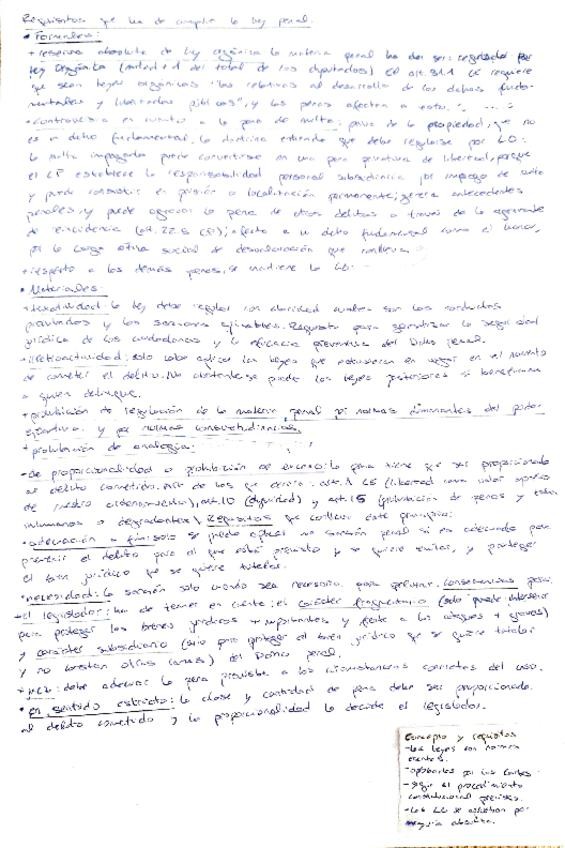 Requisitos que ha de cumplir la ley penal.
• Formales:
+ reserva absoluta de ley orgánica la materia penal ha de ser regulada por
ley orgánica (mitad + 1 del total de los diputados) el art. 81.1 CE requiere
que sean leyes orgánicas "las relativas al desarrollo de los dchos funda-
mentales y libertades públicas", y las penas afectan a
+ controversia en cuanto a la pena de multa: priva de la propiedad, que no
es dcho fundamental, la doctrina entiende que debe regularse por LO:
la multa impagada puede convertirse en una pena privativa de libertad, porque
el CP establece la responsabilidad personal subsidiaria por impago de multa
y puede consistir en prisión o localización permanente; genera antecedentes
penales, y puede agravar la pena de otros delitos a través de la agravante
de reincidencia (art. 22.8 CP); afecta a un dcho fundamental como el honor,
por la carga ético social de desvaloración que conlleva.
+ respecto a las demás penas, se mantiene la LO.
• Materiales:
+ taxatividad: la ley debe regular con claridad cuales son las conductas
prohibidas y las sanciones aplicables. Requisito para garantizar la seguridad
jurídica de los ciudadanos y la eficacia preventiva del Dcho penal.
+ irretroactividad: solo cabe aplicar las leyes que estuvieran en vigor en el momento
de cometer el delito. No obstante se puede las leyes posteriores si benefician
a quien delinque.
+ prohibición de regulación de la materia penal por normas dimanantes del poder
ejecutivo, y por normas consuetudinarias.
+ prohibición de analogía.
- de proporcionalidad o prohibición de exceso: la pena tiene que ser proporcionada
al delito cometido. art. 1 CE (libertad como valor supremo
de nuestro ordenamiento), art. 10 (dignidad) y art. 15 (prohibición de penas y tratos
inhumanos o degradantes). Requisitos que conlleva este principio:
• adecuación a fin: solo se puede aplicar una sanción penal si es adecuada para
prevenir el delito para el que está previsto y se quiere evitar, y proteger
el bien jurídico que se quiere tutelar.
• necesidad: la sanción solo cuando sea necesaria. Consecuencias para:
+ el legislador: ha de tener en cuenta: el carácter fragmentario (solo puede intervenir
para proteger los bienes jurídicos + importantes y frente a los ataques + graves)
y carácter subsidiario (solo para proteger el bien jurídico que se quiere tutelar
y no bastan otras ramas) del Derecho penal.
+ juez: debe adecuar la pena prevista a las circunstancias concretas del caso.
• en sentido estricto: la clase y cantidad de pena debe ser proporcionada
al delito cometido y la proporcionalidad la decide el legislador.
Concepto y requisitos
- las leyes son normas
escritas.
- aprobadas por las Cortes
- seguir el procedimiento
constitucional previsto.
- las LO se aprueban por
mayoría absoluta.